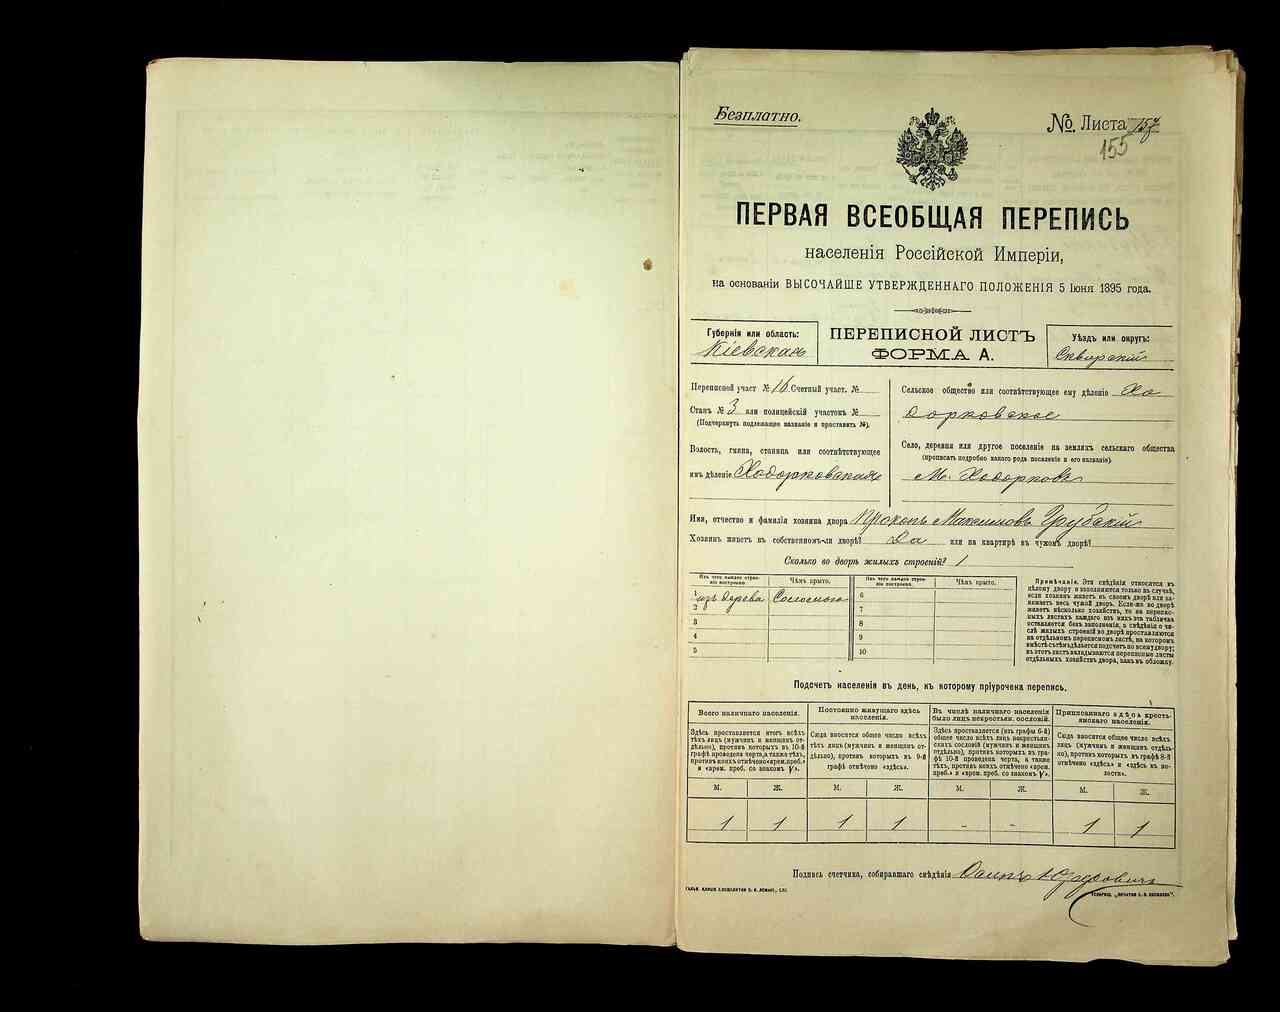 Безплатно.
№ Листа 157
155
ПЕРВАЯ ВСЕОБЩАЯ ПЕРЕПИСЬ
населенія Россійской Имперіи,
на основаніи ВЫСОЧАЙШЕ УТВЕРЖДЕННАГО ПОЛОЖЕНІЯ 5 Іюня 1895 года.
Губернія или область:
Кіевская
ПЕРЕПИСНОЙ ЛИСТЪ
ФОРМА А.
Уѣздъ или округъ:
Сквирскій
Переписной участ № 16 Счетный участ. №
Станъ № 3 или полицейскій участокъ №
(Подчеркнуть подлежащее названіе и проставить №).
Волость, гмина, станица или соотвѣтствующее
имъ дѣленіе Ходорковская
Сельское общество или соотвѣтствующее ему дѣленіе Хо
дорковское
Село, деревня или другое поселеніе на земляхъ сельскаго общества
(прописать подробно какого рода поселеніе и его названіе).
М. Ходорковъ
Имя, отчество и фамилія хозяина двора Прокопъ Максимовъ Грубскій
Хозяинъ живетъ въ собственномъ-ли дворѣ? Да или на квартирѣ въ чужомъ дворѣ?
Сколько во дворѣ жилыхъ строеній? 1
Изъ чего каждое строе-
ніе построено.
Чѣмъ крыто.
Изъ чего каждое строе-
ніе построено.
Чѣмъ крыто.
1 изъ дерева Соломою 6
2 7
3 8
4 9
5 10
Примѣчаніе. Эти свѣдѣнія относятся къ
цѣлому двору и заполняются только въ случаѣ,
если хозяинъ живетъ въ своемъ дворѣ или за-
нимаетъ весь чужой дворъ. Если-же во дворѣ
живетъ нѣсколько хозяйствъ, то на перепис-
ныхъ листахъ каждаго изъ нихъ эта табличка
оставляется безъ заполненія, а свѣдѣнія о чи-
слѣ жилыхъ строеній во дворѣ проставляются
на отдѣльномъ переписномъ листѣ, на которомъ
вмѣстѣ съ тѣмъ дѣлается подсчетъ по всему двору;
въ этотъ листъ вкладываются переписные листы
отдѣльныхъ хозяйствъ двора, какъ въ обложку.
Подсчетъ населенія въ день, къ которому пріурочена перепись.
Всего наличнаго населенія.
Здѣсь проставляется итогъ всѣхъ
тѣхъ лицъ (мужчинъ и женщинъ от-
дѣльно), противъ которыхъ въ 10-й
графѣ проведена черта, а также тѣхъ,
противъ коихъ отмѣчено «врем. преб.»
и «врем. преб. со знакомъ V».
Постоянно живущаго здѣсь
населенія.
Сюда вносится общее число всѣхъ
тѣхъ лицъ (мужчинъ и женщинъ от-
дѣльно), противъ которыхъ въ 9-й
графѣ отмѣчено «здѣсь».
Въ числѣ наличнаго населенія
было лицъ некрестьян. сословій.
Здѣсь проставляется (изъ графы 6-й)
общее число всѣхъ лицъ некрестьян-
скихъ сословій (мужчинъ и женщинъ
отдѣльно), противъ которыхъ въ гра-
фѣ 10-й проведена черта, а также
тѣхъ, противъ коихъ отмѣчено «врем.
преб.» и «врем. преб. со знакомъ V».
Приписаннаго здѣсь кресть-
янскаго населенія.
Сюда вносится общее число всѣхъ
лицъ (мужчинъ и женщинъ отдѣль-
но), противъ которыхъ въ графѣ 8-й
отмѣчено «здѣсь» и «здѣсь въ во-
лости».
М. Ж. М. Ж. М. Ж. М. Ж.
1 1 1 1 - - 1 1
Подпись счетчика, собиравшаго свѣдѣнія